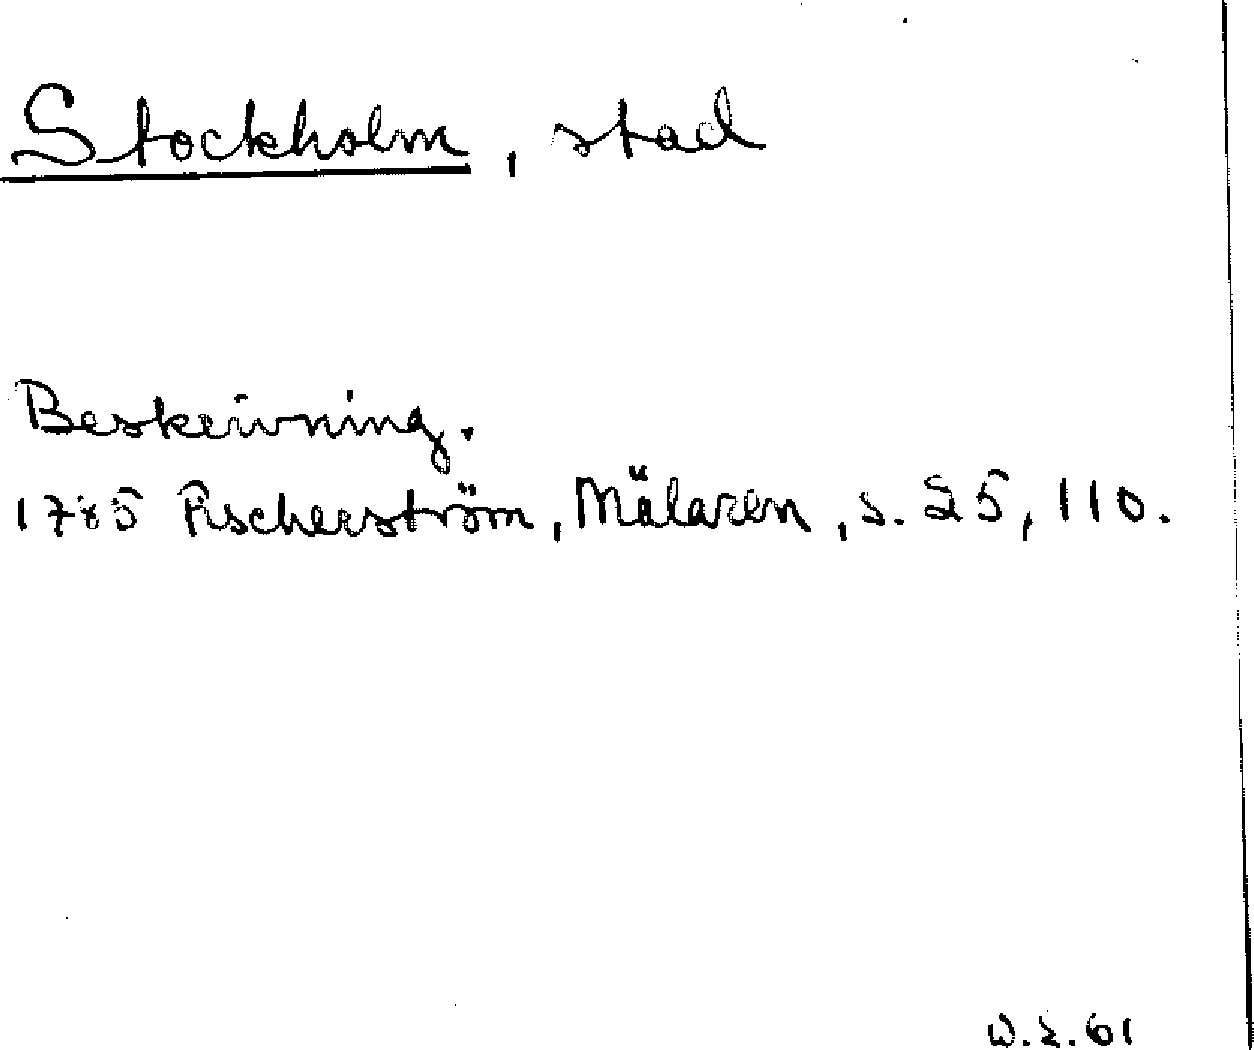 Stockholm, stad
Beskrivning.
1785 Fischerström, Mälaren, s. 25, 110.
W.S.61